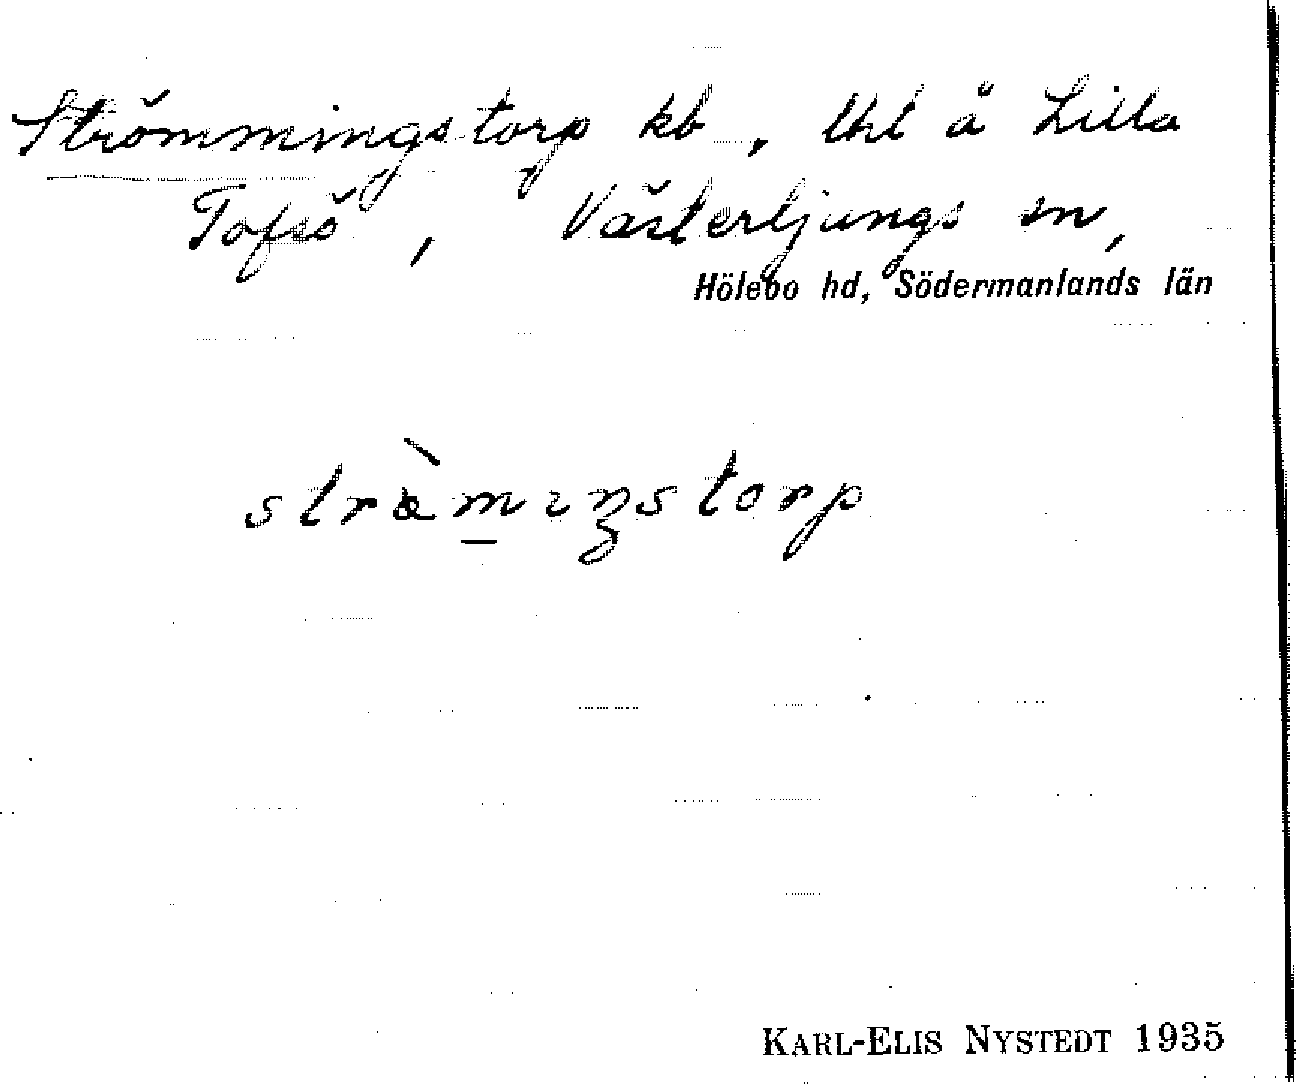 Strömmingstorp kb, Uhl å Lilla
Tofsö, Västerljungs sn,
Hölebo hd, Södermanlands län
strömıŋstorp
KARL-ELIS NYSTEDT 1935